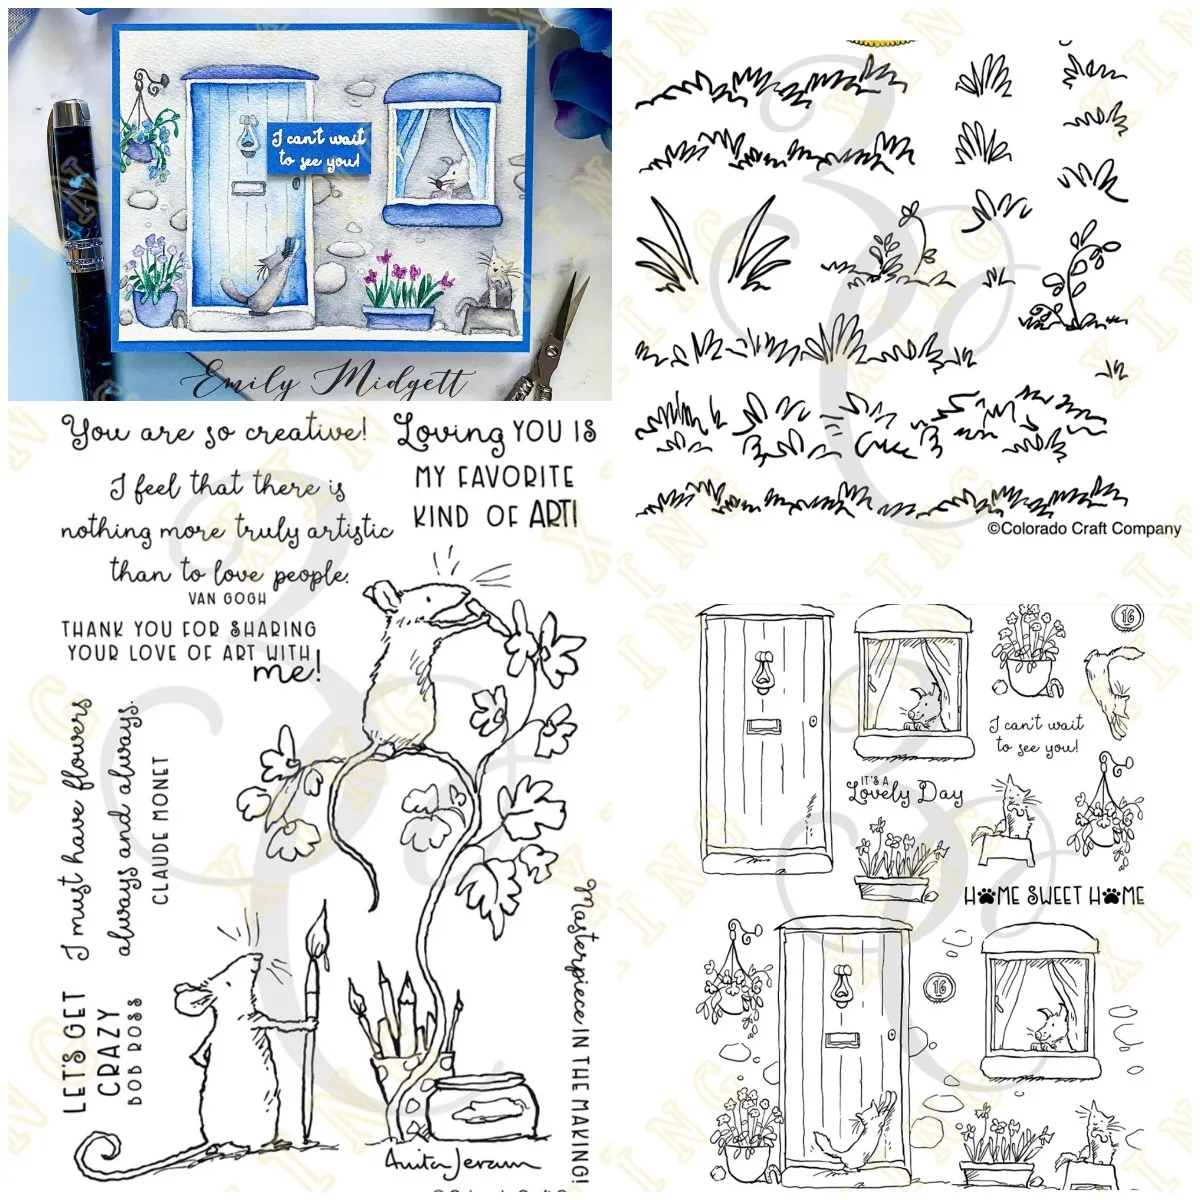 I can't wait
to see you!
Emily Midgett
You are so creative!
Loving YOU IS
MY FAVORITE
KIND OF ART!
I feel that there is
nothing more truly artistic
than to love people.
VAN GOGH
THANK YOU FOR SHARING
YOUR LOVE OF ART WITH
me!
I must have flowers
always and always.
CLAUDE MONET
LET'S GET
CRAZY
BOB ROSS
Masterpiece IN THE MAKING!
Anita Jeram
©Colorado Craft Company
16
I can't wait
to see you!
IT'S A
Lovely Day
HOME SWEET HOME
16